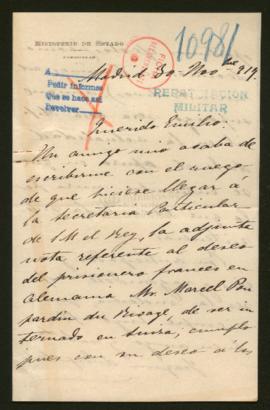 10981
MINISTERIO DE ESTADO
Madrid 30 Nov
A
Pedir informes
Que se hace así
Devolver
REPATRIACION
MILITAR
Querido Emilio:
Un amigo mio acaba de
escribirme con el ruego
de que hiciese llegar á
la Secretaria Particular
de S M el Rey, la adjunta
nota referente al deseo
del prisionero frances en
Alemania Mr. Marcel
pardin du Rivage, de ser in
ternado en Suiza; cumplo
pues con su deseo á